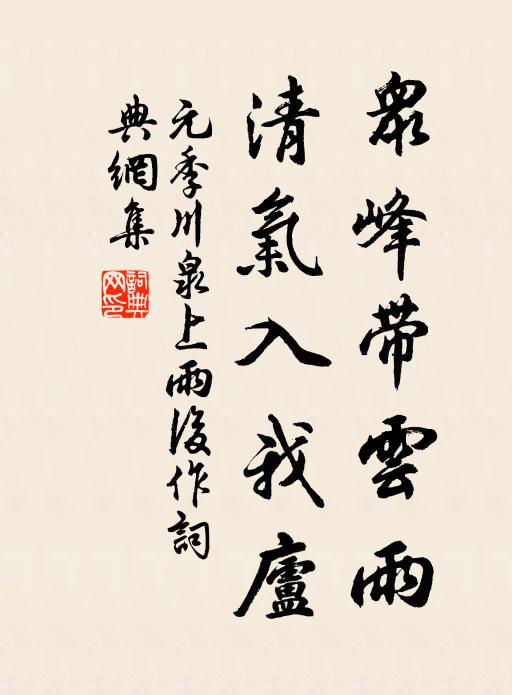 眾峰帶雲雨
清氣入我廬
元季川泉上雨後作詞
典網集
詞典網印